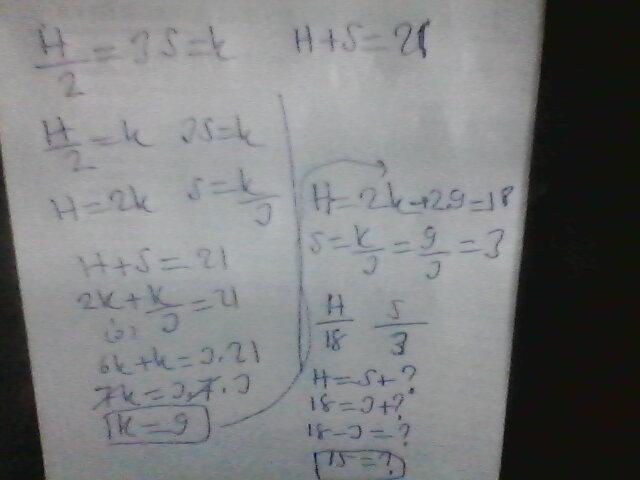 H/2 = 3S = k
H+S = 21
H/2 = k 3S = k
H = 2k S = k/3
H+S = 21
2k + k/3 = 21
(3)
6k+k = 3.21
7k = 3.7.3
k = 9
H = 2k → 2.9 = 18
S = k/3 = 9/3 = 3
H/18 S/3
H = S + ?
18 = 3 + ?
18 - 3 = ?
15 = ?